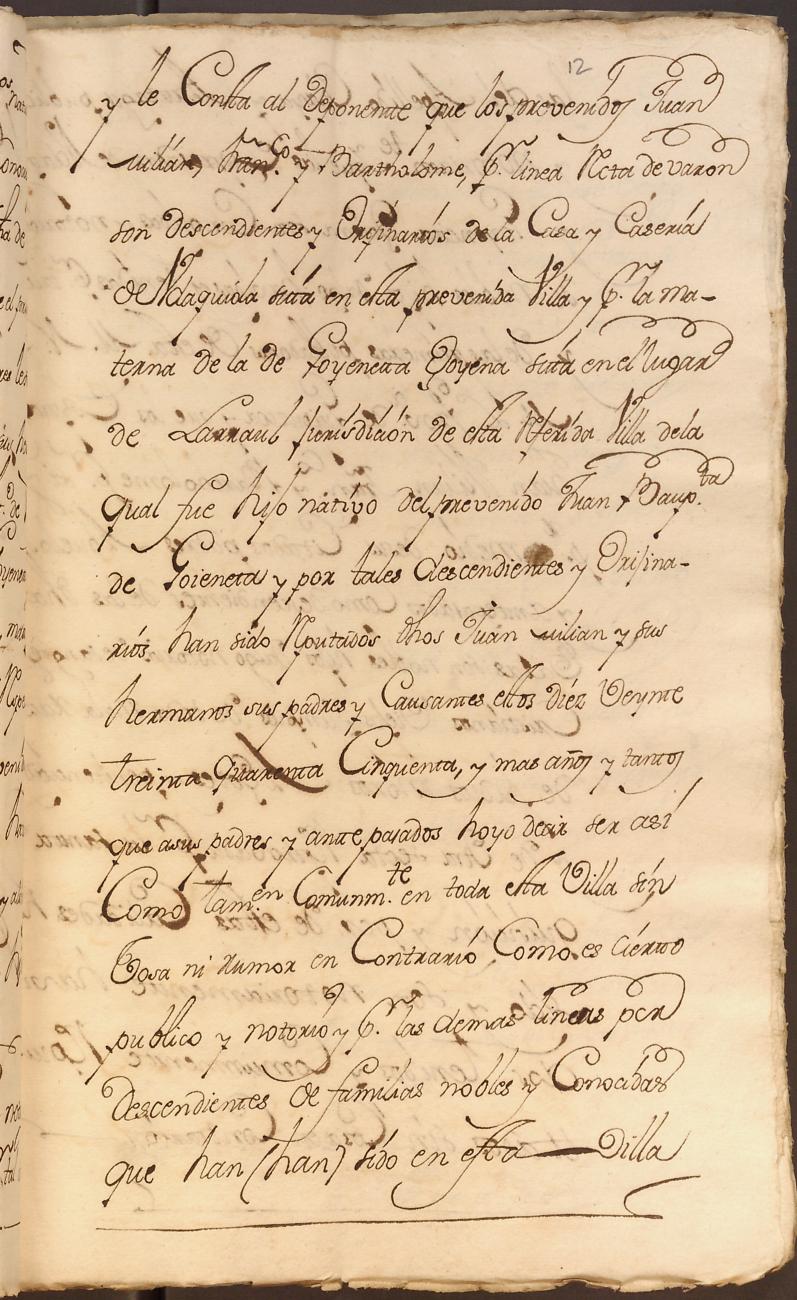 12
y le Consta al Deponente que los prevenidos Juan
uilian, Fran.co y Bartholome, p.r linea Recta de varon
son descendientes y Orijinarios de la Casa y Caseria
de sita en esta prevenida Villa y p.r la ma-
terna de la de Goyeneta Goyena sita en el lugar
de Larraul jurisdición de esta Referida Villa de la
qual fue hijo nativo del prevenido Juan Baup.ta
de Goieneta y por tales descendientes y Orijina-
rios han sido Reputados dhos Juan uilian y sus
hermanos sus padres y Causantes estos diéz Veynte
treinta quarenta Cinquenta, y mas años y tantos
que a sus padres y ante pasados hoyo decir ser así
Como tam.en Comunm.te en toda esta Villa sin
Cosa ni rumor en Contrario Como es Ciérto
publico y notorio y p.r las demas lineas per
Descendientes de familias nobles y Conocidas
que han (han) sido en esta Villa